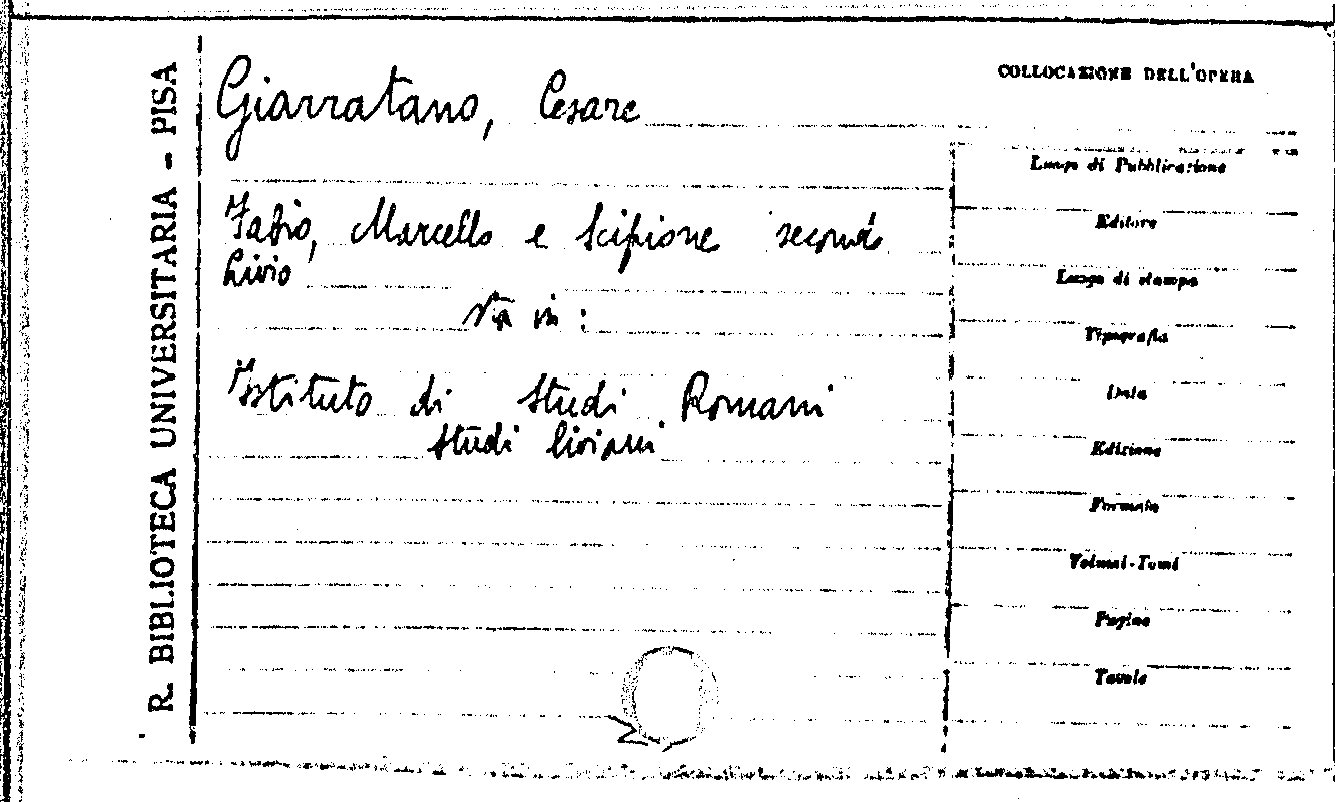 R. BIBLIOTECA UNIVERSITARIA - PISA
Giarratano, Cesare
Fabio, Marcello e Scipione secondo
Livio
Sta in:
Istituto di Studi Romani
Studi liviani
COLLOCAZIONE DELL'OPERA
Luogo di Pubblicazione
Editore
Luogo di stampa
Tipografia
Data
Edizione
Formato
Volumi-Tomi
Pagine
Tavole